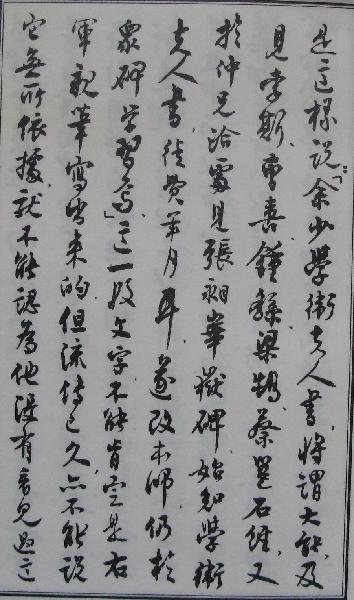 是这樣说:「余少學衛夫人書,將謂大能,及
見李斯、曹喜、鍾繇、梁鵠、蔡邕石經,又
於仲兄洽處見張昶華嶽碑,始知學衛
夫人書,徒費年月耳,遂改本師,仍於
眾碑学習焉」这一段文字不能肯定是右
軍親筆寫出来的,但流傳已久,亦不能说
它無所依據,就不能認為他沒有看見過这